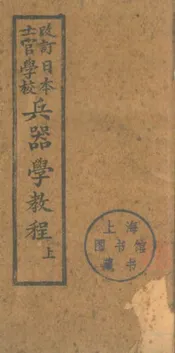 改訂日本
士官學校
兵器學教程 上
上海
图书馆
藏书